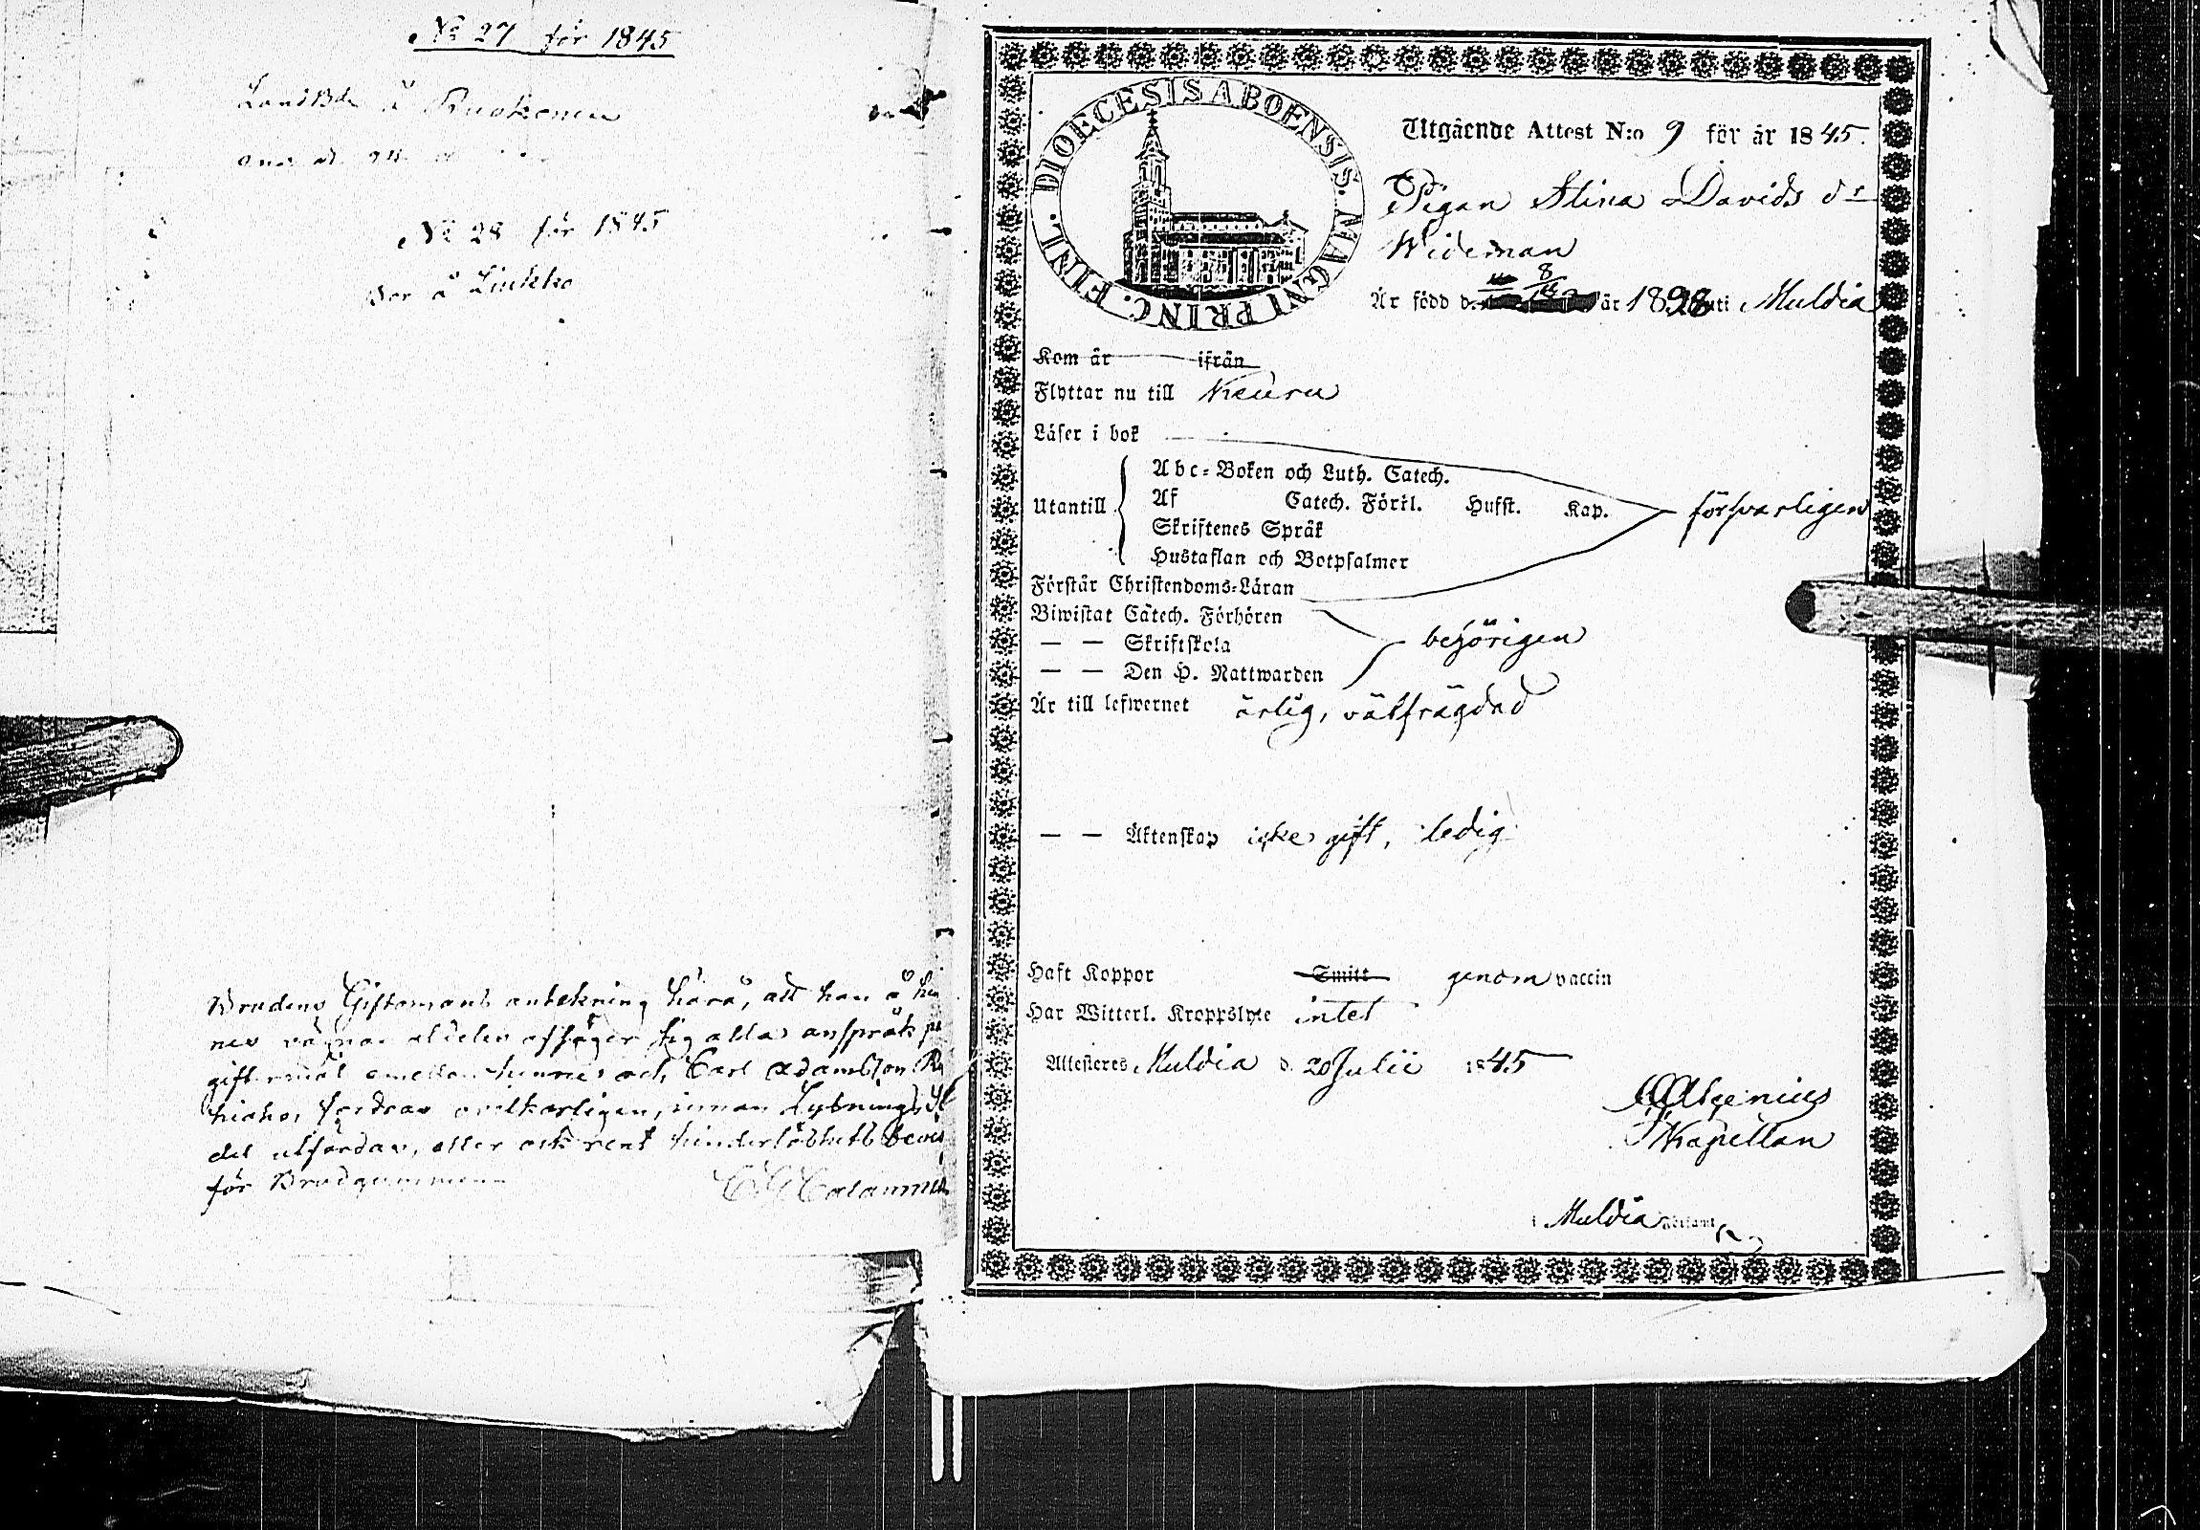 No 27 för 1845
å Ruokonen
No 28 för 1845
Bor å Liukko
Brudens Giftomans antekning härå, att han å hen
nes vägnar aldeles afsäger sig alla anspråk på
giftermål emellan henne och Carl Adamsson
fordrar ovilkorligen, innan Lysnings
det utfärdas, eller ock rent hinderlöshets bevis
för Brudgummen
DIOECESIS ABOENSIS. MAGNI PRINC. FINL.
Utgående Attest N:o 9 för år 1845.
Pigan Stina Davids dr
Wideman
Är född d. 8 år 1828 uti Muldia
Kom år ifrån
Flyttar nu till Keuru
Läser i bok
Abc-Boken och Luth. Catech.
Utantill Af Catech. Förkl. Husst. Kap. försvarligen
Skriftenes Språk
Hustaflan och Botpsalmer
Förstår Christendoms-Läran
Biwistat Catech. Förhören
— — Skriftskola behörigen
— — Den H. Nattwarden
Är till lefwernet ärlig, välfrägdad
— — Äktenskap icke gift, ledig
Haft Koppor Smitt genom vaccin
Har Witterl. Kroppslyte intet
Attesteres Muldia d. 20 Julii 1845
Kapellan
i Muldia